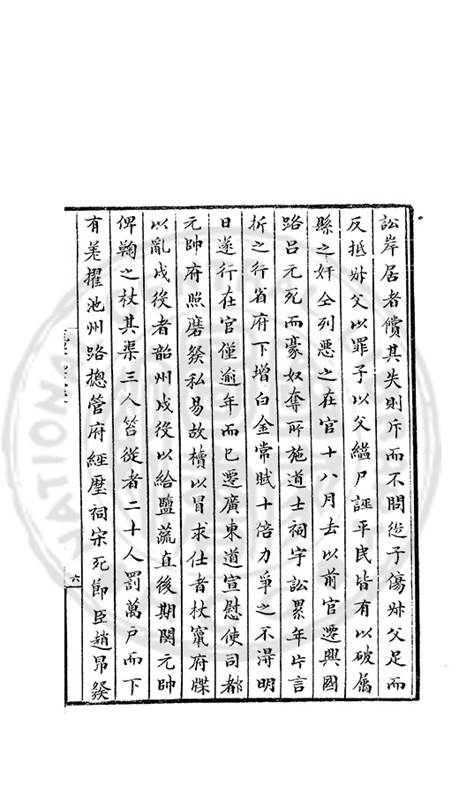 訟岸居者償其失則斥而不問從子傷叔父足而
反抵叔父以罪子以父縊尸誣平民皆有以破属
縣之奸仝列惡之在官十八月去以前官遷興國
路呂元死而豪奴奪所施道士祠宇訟累年片言
折之行省府下增白金常賦十倍力争之不得明
日遂行在官僅逾年而已遷廣東道宣慰使司都
元帥府照磨發私易故檟以冒求仕者杖竄府牒
以亂戍役者韶州戍役以給鹽蔬直後期閧元帥
俾鞫之杖其渠三人笞從者二十人罰萬戶而下
有差擢池州路總管府經歷祠宋死節臣趙昂發
六